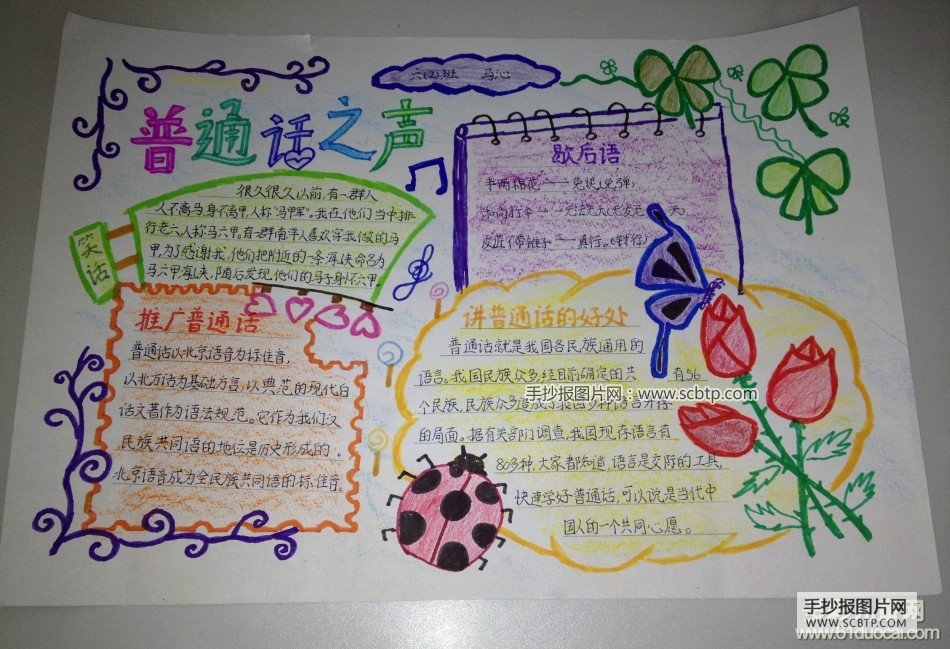 普通话之声
六(2)班 马沁
笑话
很久很久以前,有一群人
人不高马,身不高甲,人称"马甲军"。我在他们当中排
行老六,人称马六甲。有一群南洋人喜欢穿我做的马
甲,为了感谢我,他们把附近的一条海峡命名为
马六甲海峡,随后发现,他们的马子身怀六甲。
歇后语
半两棉花——免谈(免弹)
和尚打伞——无法无天(无发无天)
反
推广普通话
普通话以北京语音为标准音,
以北方话为基础方言,以典范的现代白
话文著作为语法规范。它作为我们汉
民族共同语的地位是历史形成的,
北京语音成为全民族共同语的标准音。
讲普通话的好处
普通话就是我国各民族通用的
语言。我国民族众多,经目前确定的共 有56
个民族,民族众多造成了我国多种语言并存
的局面。据有关部门调查,我国现存语言有
803种,大家都知道,语言是交际的工具,
快速学好普通话,可以说是当代中
国人的一个共同心愿。
手抄报图片网:www.scbtp.com
手抄报图片网
WWW.SCBTP.COM
www.61duocai.com